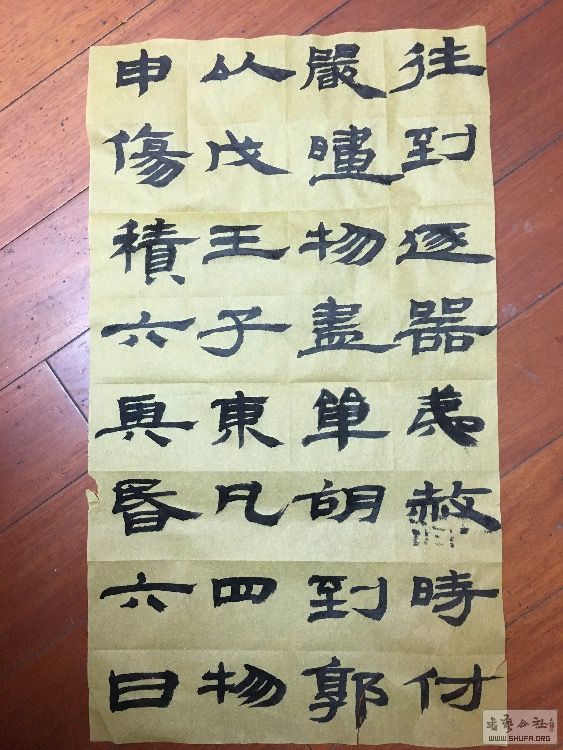 往到逐器赦時付
嚴物盡單胡到郭
以戊王子東凡四物
申傷積六昏六日
书艺公社
WWW.SHUFA.ORG